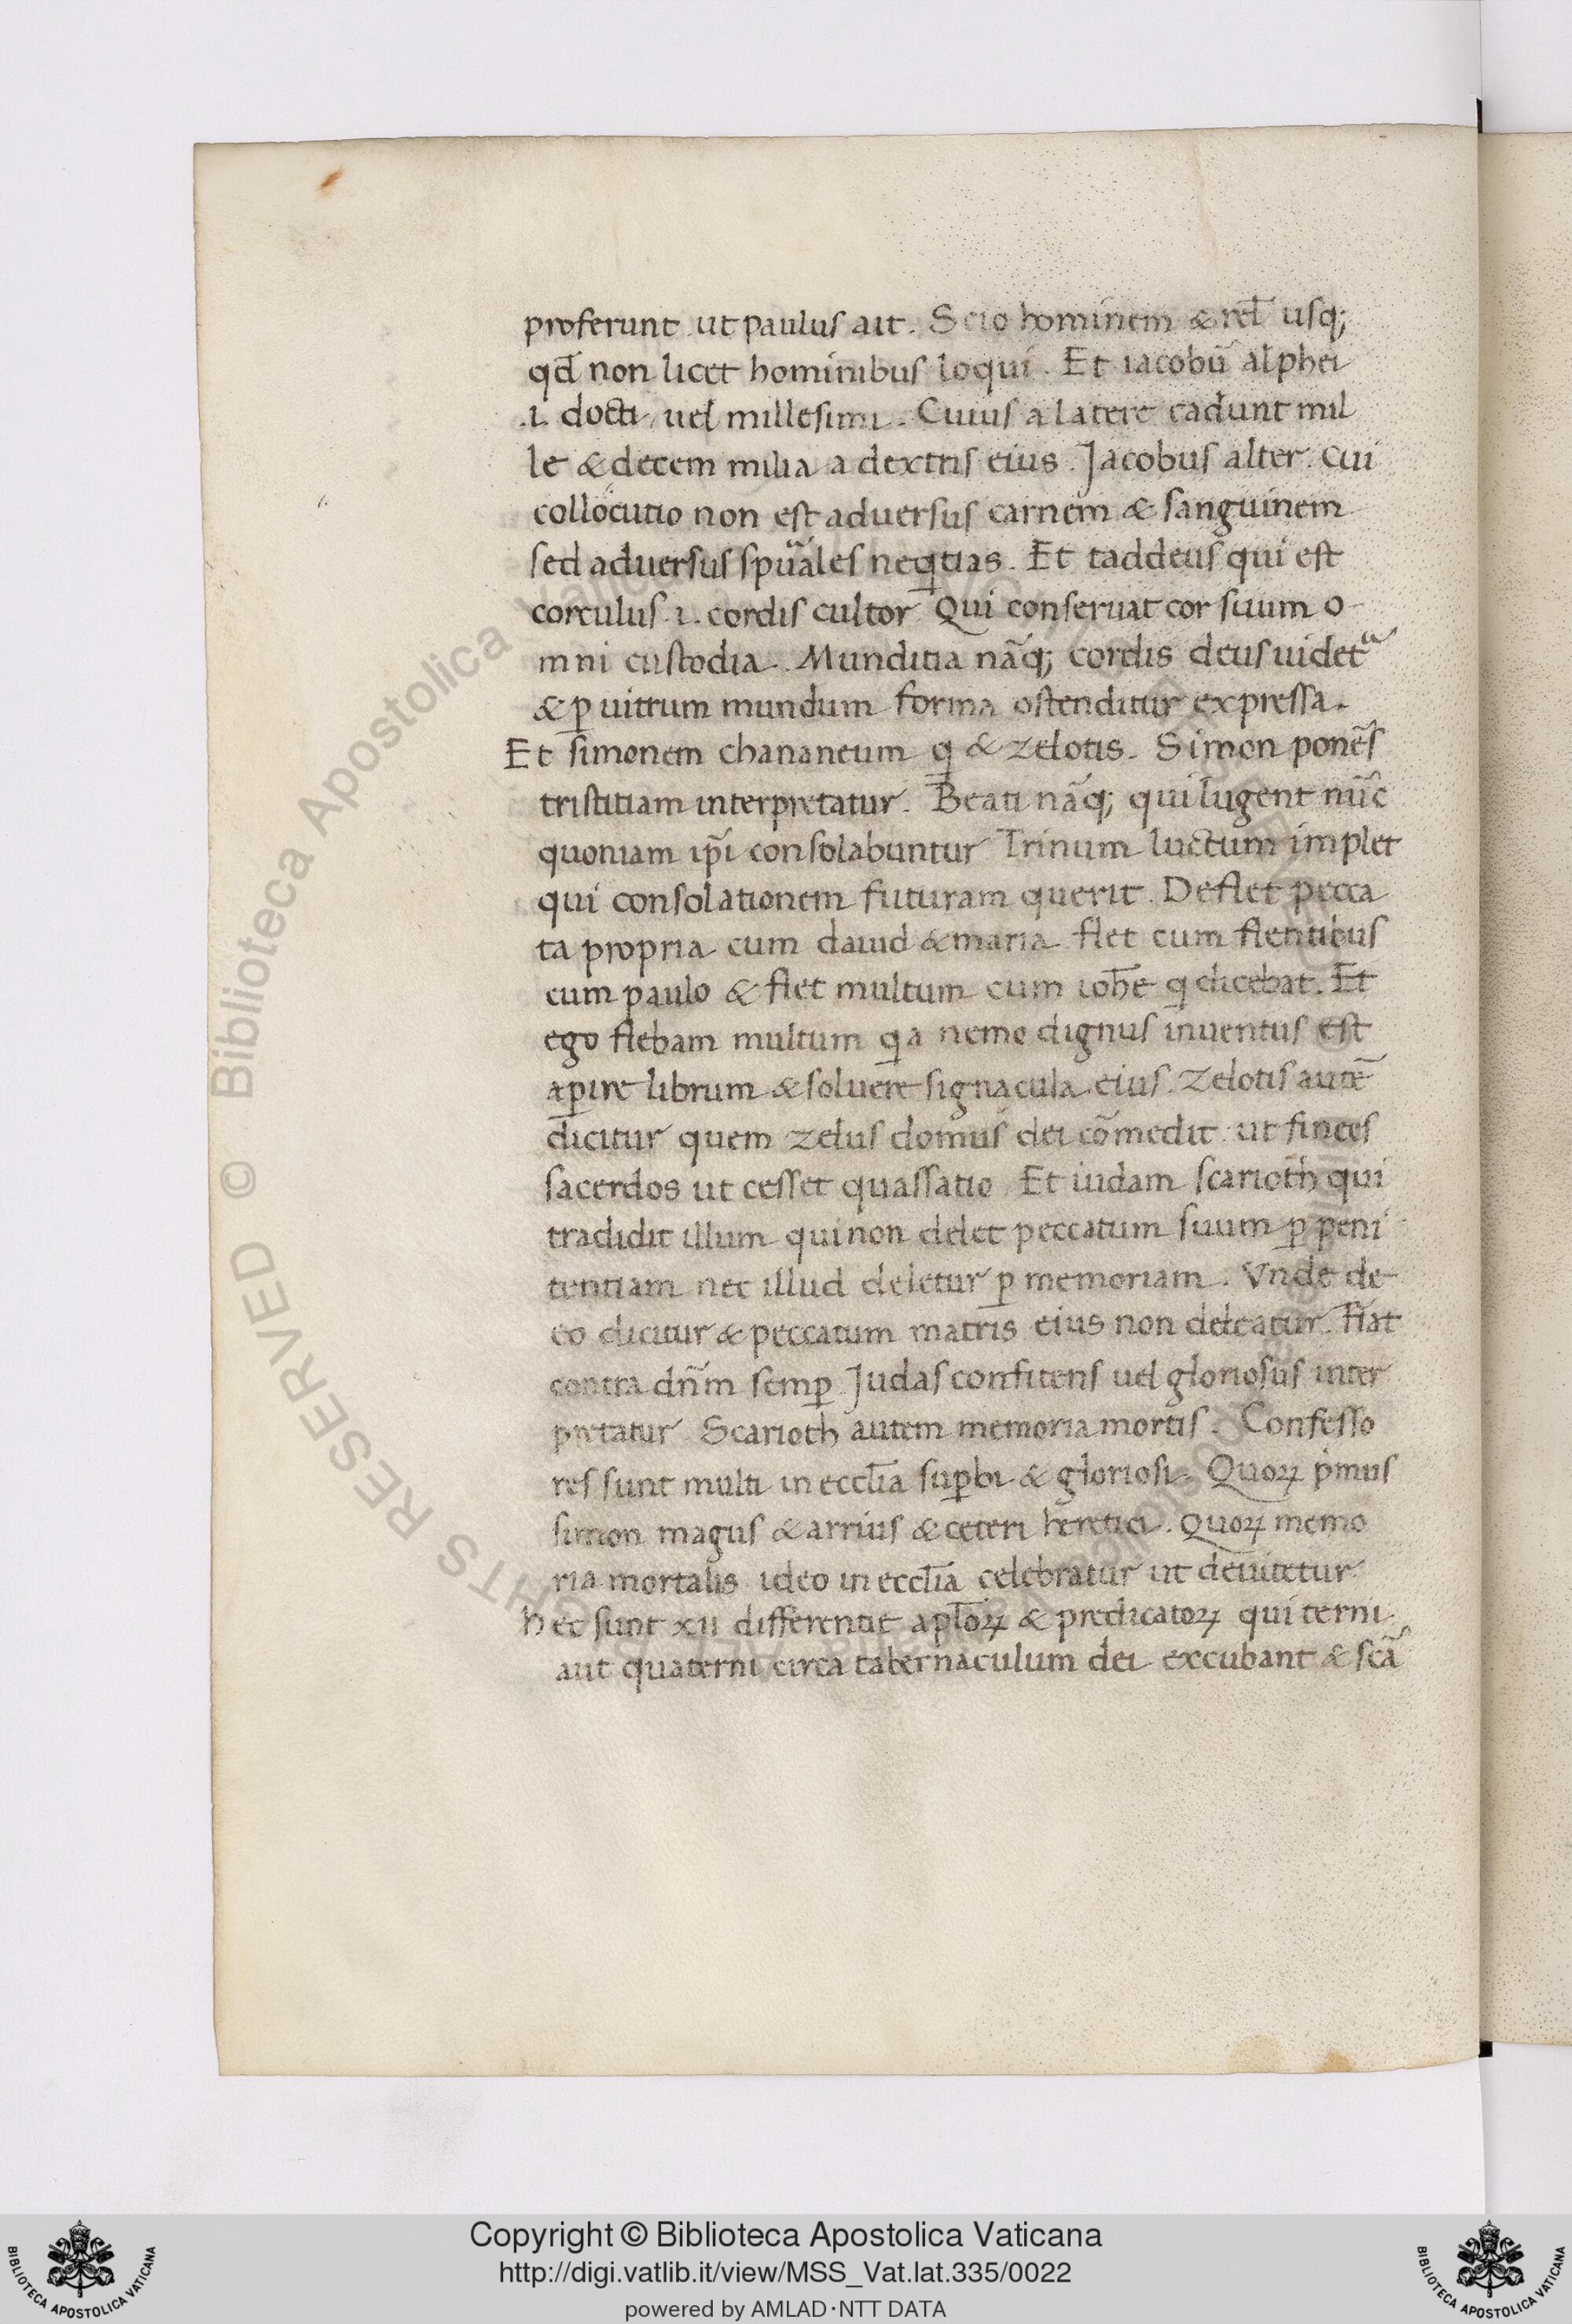 proferunt ut paulus ait. Scio hominem & rel̄ usq;
qđ non licet hominibus loqui. Et iacobū alphei
.i. docti uel millesimi. Cuius a latere cadunt mil
le & decem milia a dextris eius. Jacobus alter. cui
collocutio non est aduersus carnem & sanguinem
sed aduersus spũales neqtias. Et taddeus qui est
corculus .i. cordis cultor Qui conseruat cor suum o-
mni custodia. Munditia nãq; cordis deus uidet᷑
& ꝑ uitrum mundum forma ostenditur expressa.
Et simonem chananeum q & zelotis. Simon ponẽs
tristitiam interpretatur. Beati nãq; qui lugent nũc
quoniam ip̃i consolabuntur Trinum luctum implet
qui consolationem futuram querit. Deflet pecca
ta propria cum dauid & maria flet cum flentibus
cum paulo & flet multum cum ioh̄e q dicebat. Et
ego flebam multum qa nemo dignus inuentus est
aꝑire librum & soluere signacula eius. Zelotis autē
dicitur quem zelus domus dei cõmedit ut finees
sacerdos ut cesset quassatio. Et iudam scarioth qui
tradidit illum qui non delet peccatum suum ꝑ peni
tentiam nec illud deletur ꝑ memoriam. Vnde de
eo dicitur & peccatum matris eius non deleatur. fiat
contra dñm semꝑ Judas confitens uel gloriosus inter
pretatur. Scarioth autem memoria mortis. Confesso
res sunt multi in eccl̄ia suꝑbi & gloriosi. Quoꝝ pmus
simon magus & arrius & ceteri heretici. Quoꝝ memo
ria mortalis ideo in eccl̄ia celebratur ut deuitetur
hec sunt xii differentie apl̄oꝝ & predicatoꝝ qui terni
aut quaterni circa tabernaculum dei excubant & scã
Copyright © Biblioteca Apostolica Vaticana
http://digi.vatlib.it/view/MSS_Vat.lat.335/0022
powered by AMLAD·NTT DATA